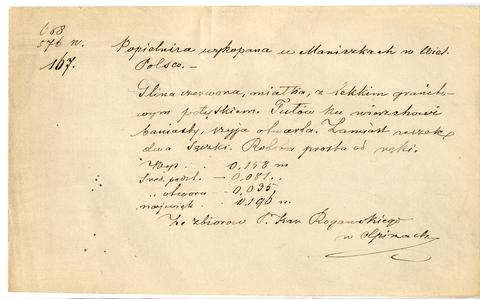 668
576 n.
167.
Popielnica wykopana w Maniszkach w Wiel.
Polsce. —
Glina czerwona, miałka, z lekkim granito-
wym połyskiem. Tułów ku wierzchowi
baniasty, szyja otwarta. Zamiast uszek
dwa sęczki. Robota prosta od ręki.
Wys. . . — 0,158 m
Śred. podst. — 0,081 . .
„ otworu — 0,095
najwięk. . 0.190 n.
Ze zbiorów P. Kar. Rogawskiego
w Ołpinach